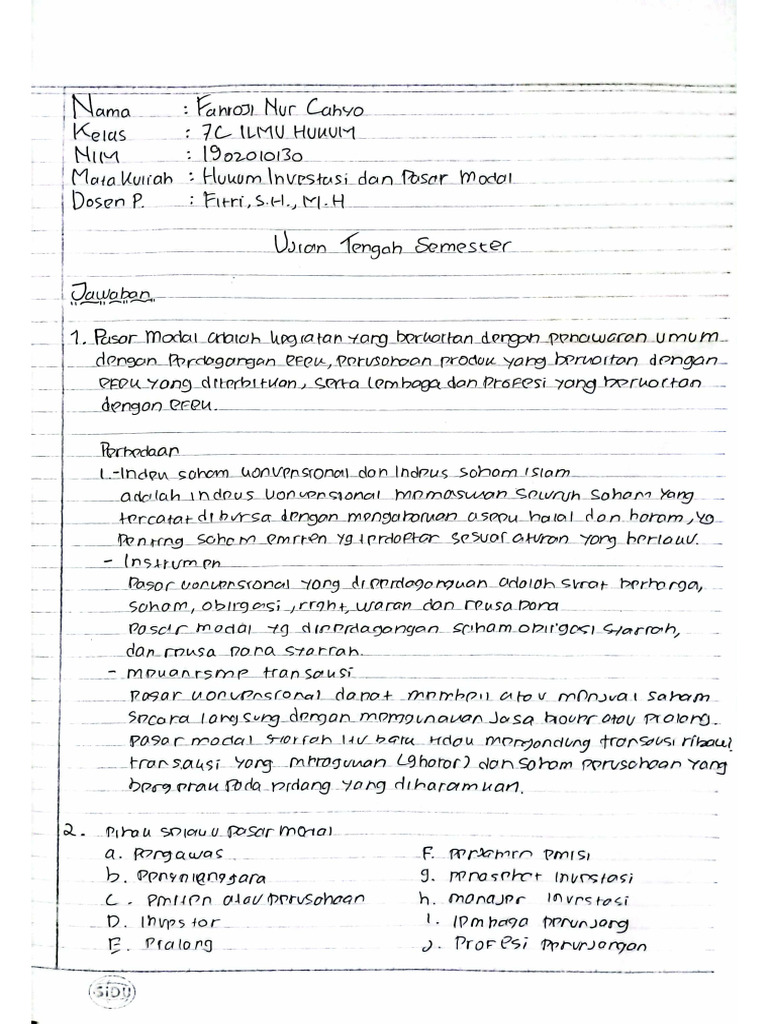 Nama : Fahroji Nur Cahyo
Kelas : 7C ILMU HUKUM
NIM : 1902010130
Mata Kuliah : Hukum Investasi dan Pasar Modal
Dosen P. : Fitri, S.H., M.H
Ujian Tengah Semester
Jawaban
1. Pasar Modal adalah kegiatan yang berkaitan dengan penawaran umum
dengan perdagangan efek, perusahaan produk yang berkaitan dengan
efek yang diterbitkan, serta lembaga dan profesi yang berkaitan
dengan efek.
Perbedaan
1. - Indek saham konvensional dan Indeks saham islam
adalah indeks konvensional memasukan seluruh saham yang
tercatat dibursa dengan mengabaikan aspek halal dan haram, yg
penting saham emiten yg terdaftar sesuai aturan yang berlaku.
- Instrumen
Pasar konvensional yang diperdagangkan adalah surat berharga,
saham, obligasi, right, waran dan reksa dana
Pasar modal yg diperdagangan saham obligasi syariah,
dan reksa dana syariah.
- mekanisme transaksi
Pasar konvensional dapat membeli atau menjual saham
secara langsung dengan menggunakan jasa broker atau pialang.
Pasar modal syariah itu baru tidak mengandung transaksi ribawi
transaksi yang meragukan (ghoror) dan saham perusahaan yang
bergerak pada bidang yang diharamkan.
2. Pihak selaku pasar modal
a. Pengawas
b. Penyelenggara
c. Emiten atau perusahaan
D. Investor
E. Pialang
F. Penjamin emisi
g. penasehat investasi
h. manajer investasi
i. lembaga penunjang
j. Profesi penunjangan
SIDU